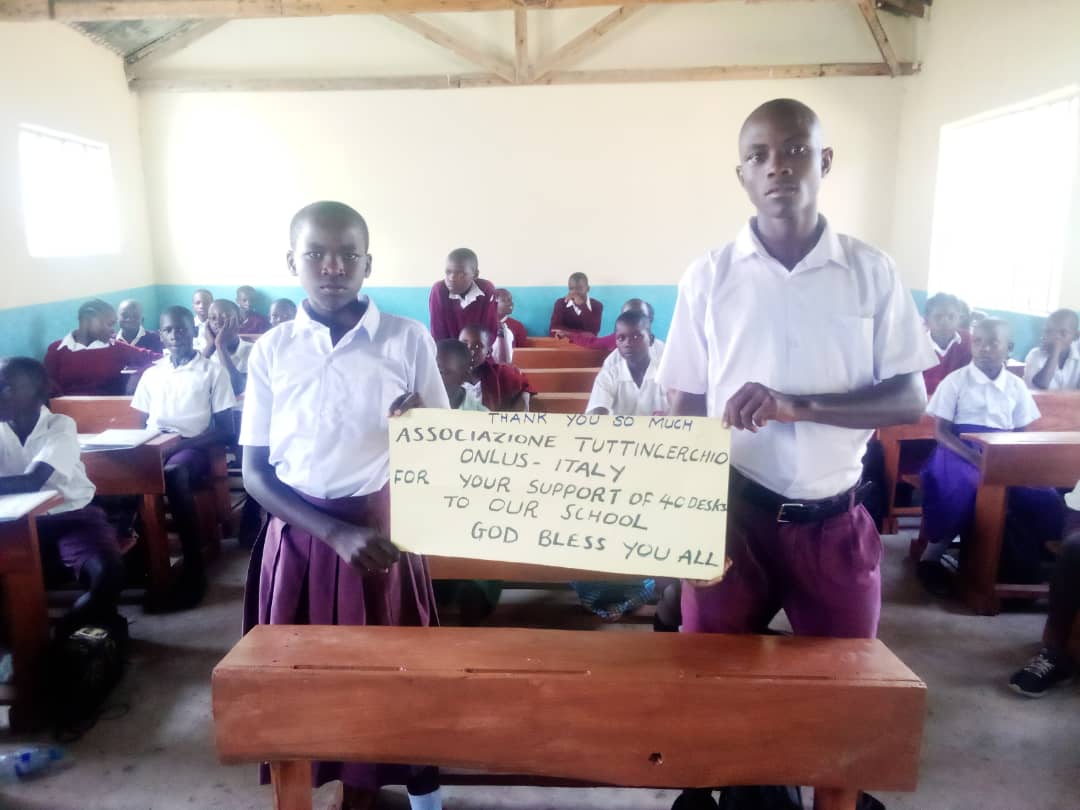 THANK YOU SO MUCH
ASSOCIAZIONE TUTTINCERCHIO
ONLUS - ITALY
FOR YOUR SUPPORT OF 40 DESKS
TO OUR SCHOOL
GOD BLESS YOU ALL